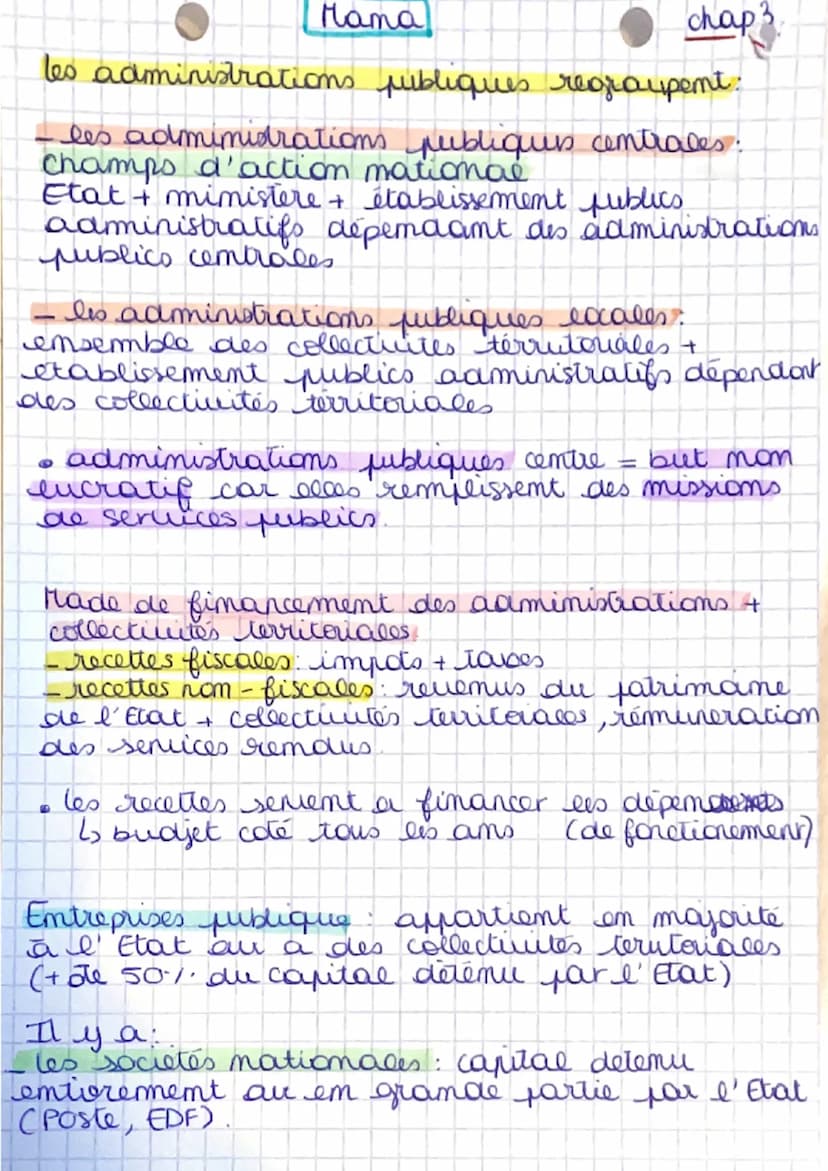 Mana
chap 3
les administrations publiques regroupent:
- les administrations publiques centrales:
champs d'action national
Etat + ministère + établissement publics
administratifs dépendant des administrations
publics centrales
- les administrations publiques locales:
ensemble des collectivités territoriales +
établissement publics administratifs dépendant
des collectivités territoriales
• administrations publiques centre = but non
lucratif car elles remplissent des missions
de services publics.
Mode de financement des administrations +
collectivités territoriales
- recettes fiscales: impots + taxes
- recettes non-fiscales: revenus du patrimoine
de l'Etat + collectivités territoriales, rémunération
des services rendus.
• les recettes servent a financer les dépenses
↳ budjet coté tous les ans (de fonctionement)
Entreprises publique: appartient en majorité
à l'Etat ou a des collectivités territoriales
(+ de 50% du capital détenu par l'Etat)
Il y a:
- les sociétés nationales: capital detenu
entierement ou en grande partie par l'Etat
(Poste, EDF).